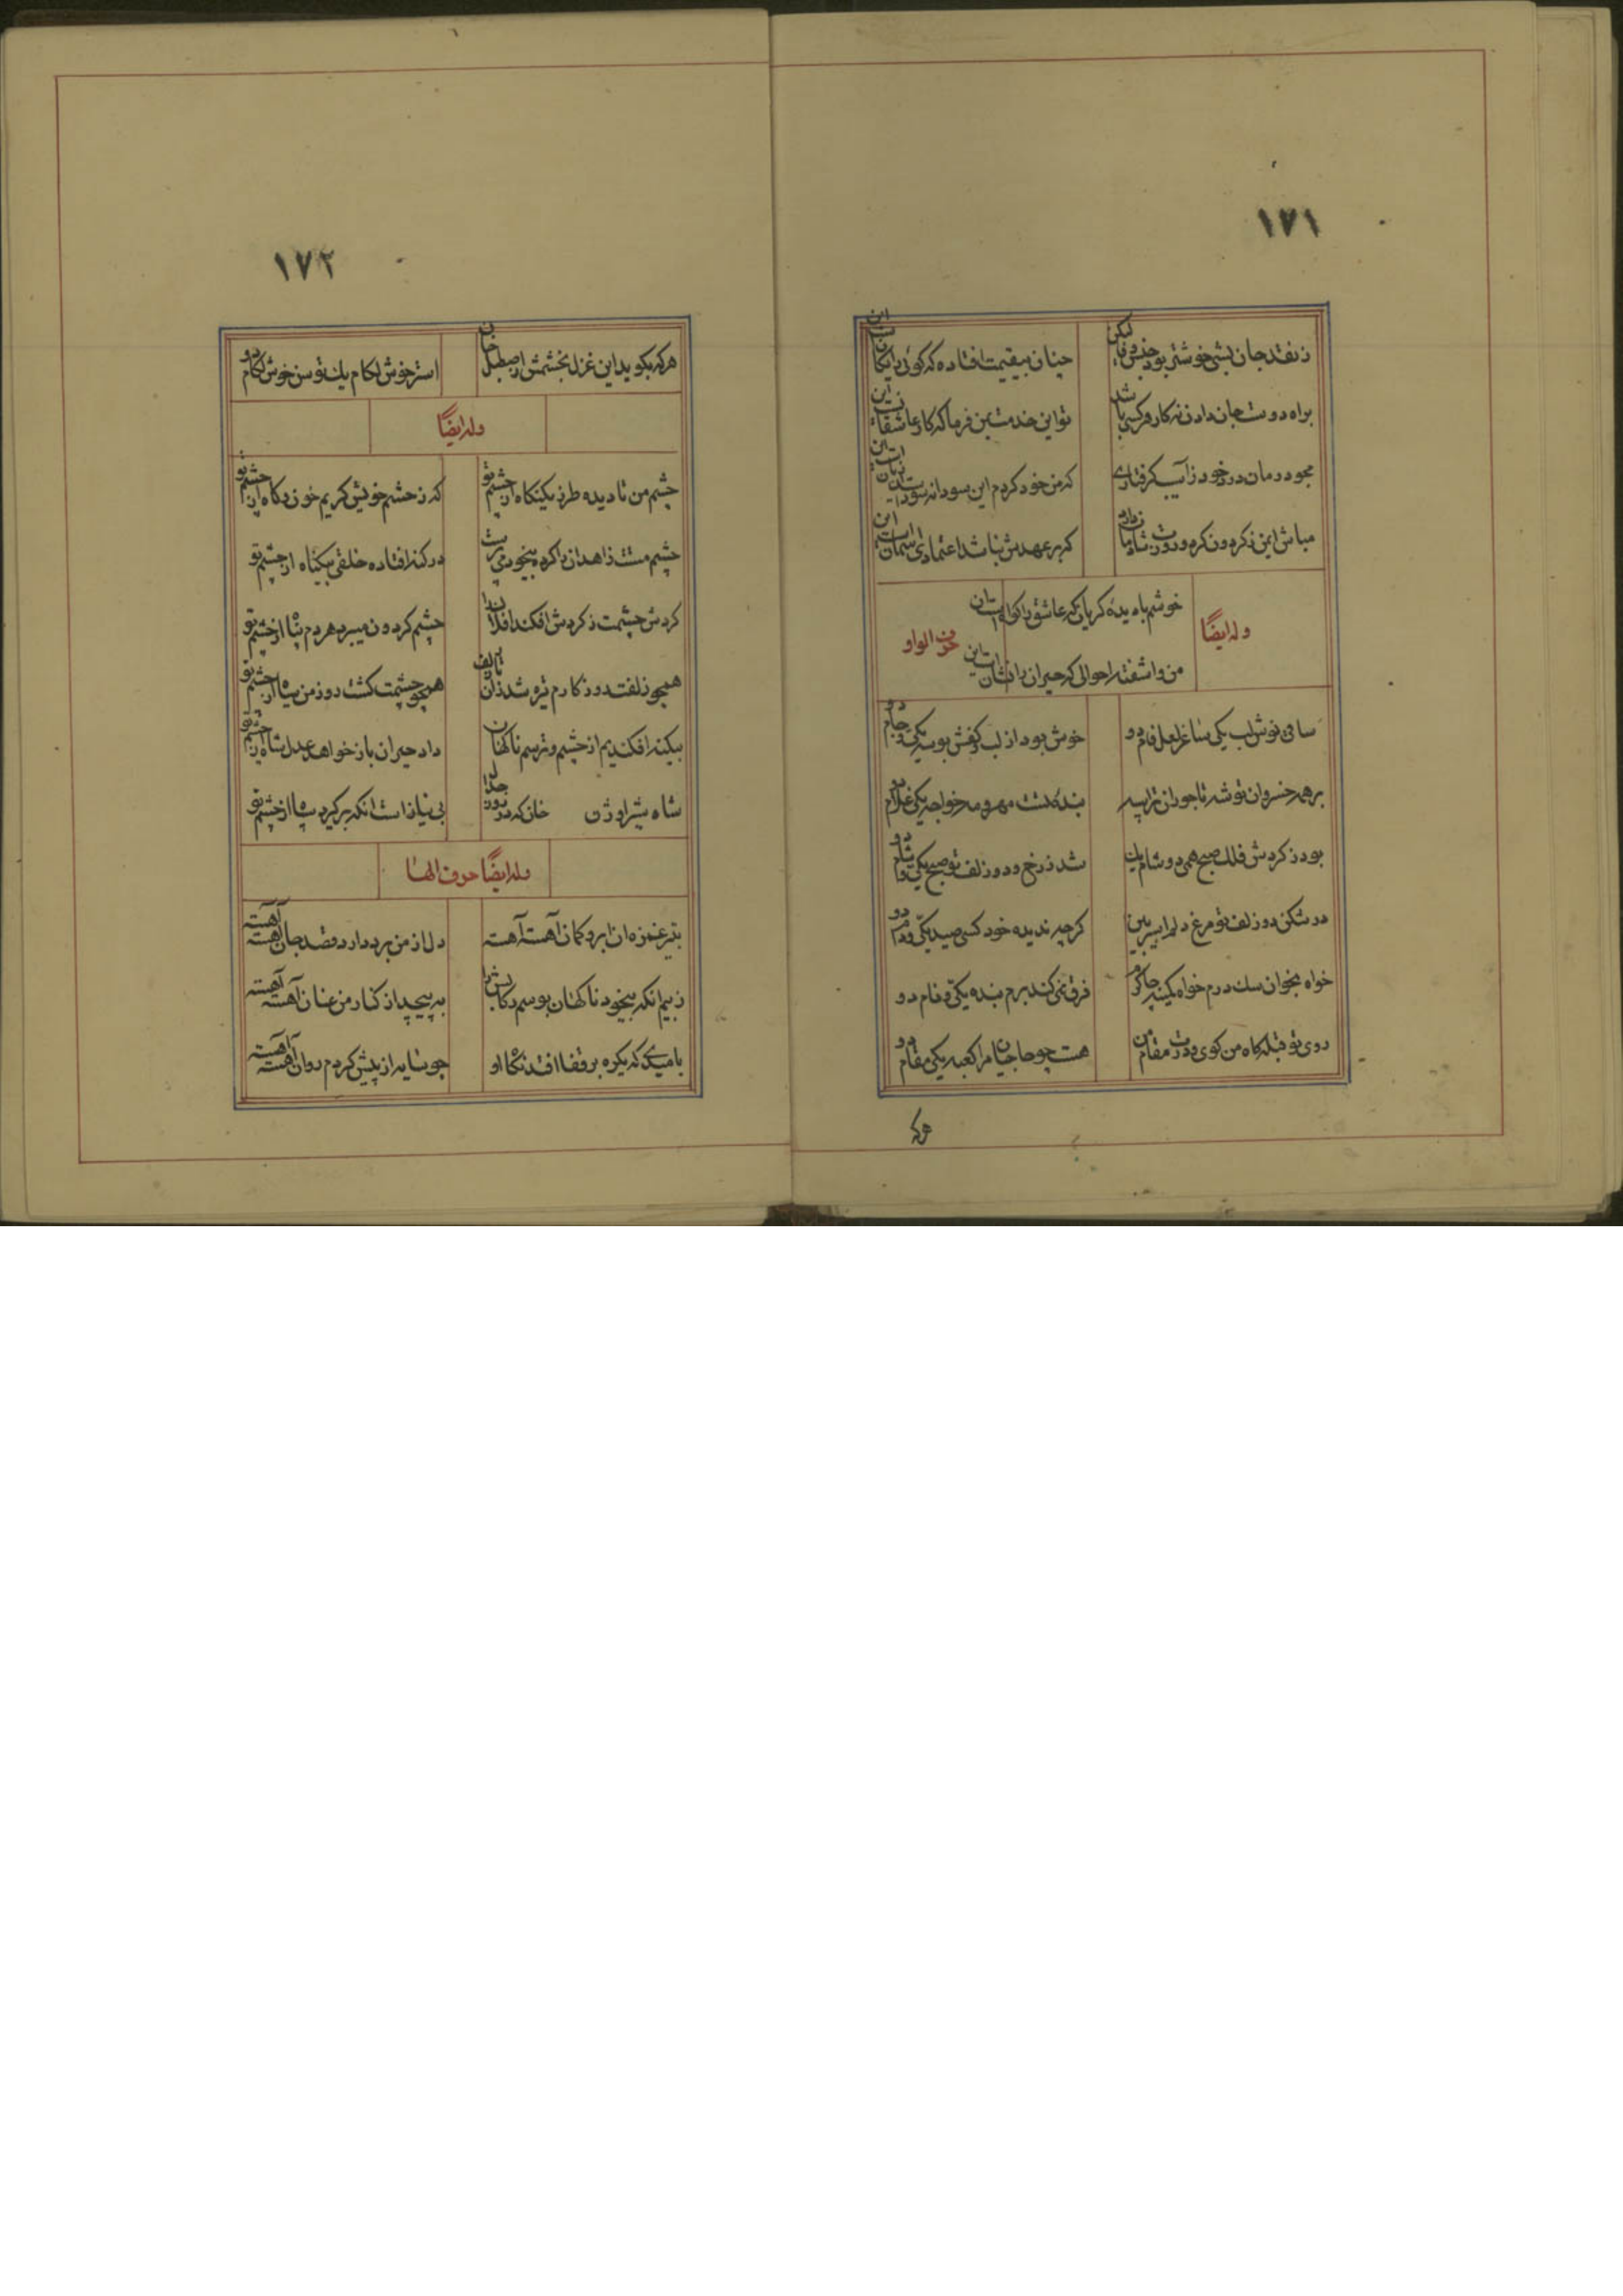 ١٧١
ز نقد جان بسی خوشتر بود جنس وفا لیکن
چنان بیقیمت افتاده که کوئی رایکانست این
براه دوست جان دادن نه کار هر کسی باشد
تو این خدمت بمن فرما که کار عاشقانست این
مجو درمان درد خود ز آسیب کرفتاری
که من خود کردم این سودا نه سودست این زیانست این
مباش ایمن ز کردون کرد و روزت شادمان دارد
که بر عهدش نباشد اعتمادی آسمانست این
وله ایضًا
خوشم با دیدهٔ کریان که عاشق را کواهست آن
من و آشفته احوالی که حیران را نشانست این
حرف الواو
ساقی نوش لب یکی ساغر لعل فام دو
خوش بود از لب و کفش بوسه یکی و جام دو
بر همه خسروان توشه تاجوران ترا سپه
بندهٔ تست مهر و مه خواجه یکی غلام دو
بود ز کردش فلک صبح همی دو شام یک
شد ز رخ و دو زلف تو صبح یکی و شام دو
در شکن دو زلف تو مرغ دلم اسیر بین
کرچه ندیده خود کسی صید یکی و دام دو
خواه بخوان سک درم خواه کمینه چاکرم
فرق نمی کند برم بنده یکی و نام دو
روی تو قبله کاه من کوی تو مقام من
هست چو حاجیان مرا کعبه یکی مقام دو
هرکه
١٧٢
هرکه بکوید این غزل بخشمش از صطبل خان
استر خوش لکام یک توسن خوش لکام دو
وله ایضًا
چشم من نادیده طرز یکنکاه از چشم تو
که ز خشم خویش کریم خون و کاه از چشم تو
چشم مستت زاهدان را کرده بیخود می پرست
در کنه افتاده خلقی بیکناه از چشم تو
کردش چشمت ز کردش افکند افلاک را
چشم کردون میبرد هر دم پناه از چشم تو
همچو زلفت روزکارم تیره شد زان تار زلف
همچو چشمت کشت روز من سیاه از چشم تو
بیکنه افکندیم از چشم و ترسم ناکهان
داد حیران باز خواهد عدل شاه از چشم تو
شاه شیراوژن خان که در روز جدال
بی نیاز است آنکه بر کیرد سپاه از چشم تو
وله ایضًا حرف الهاء
بتیر غمزه آن ابرو کمان آهسته آهسته
دل از من برد و دارد قصد جان آهسته آهسته
ز بیم آنکه بیخود ناکهان بوسم رکابش را
به پیچید از کنار من عنان آهسته آهسته
بامیدی که یکره بر قفا افتد نکاه او
چو سایه از پیش کردم روان آهسته آهسته